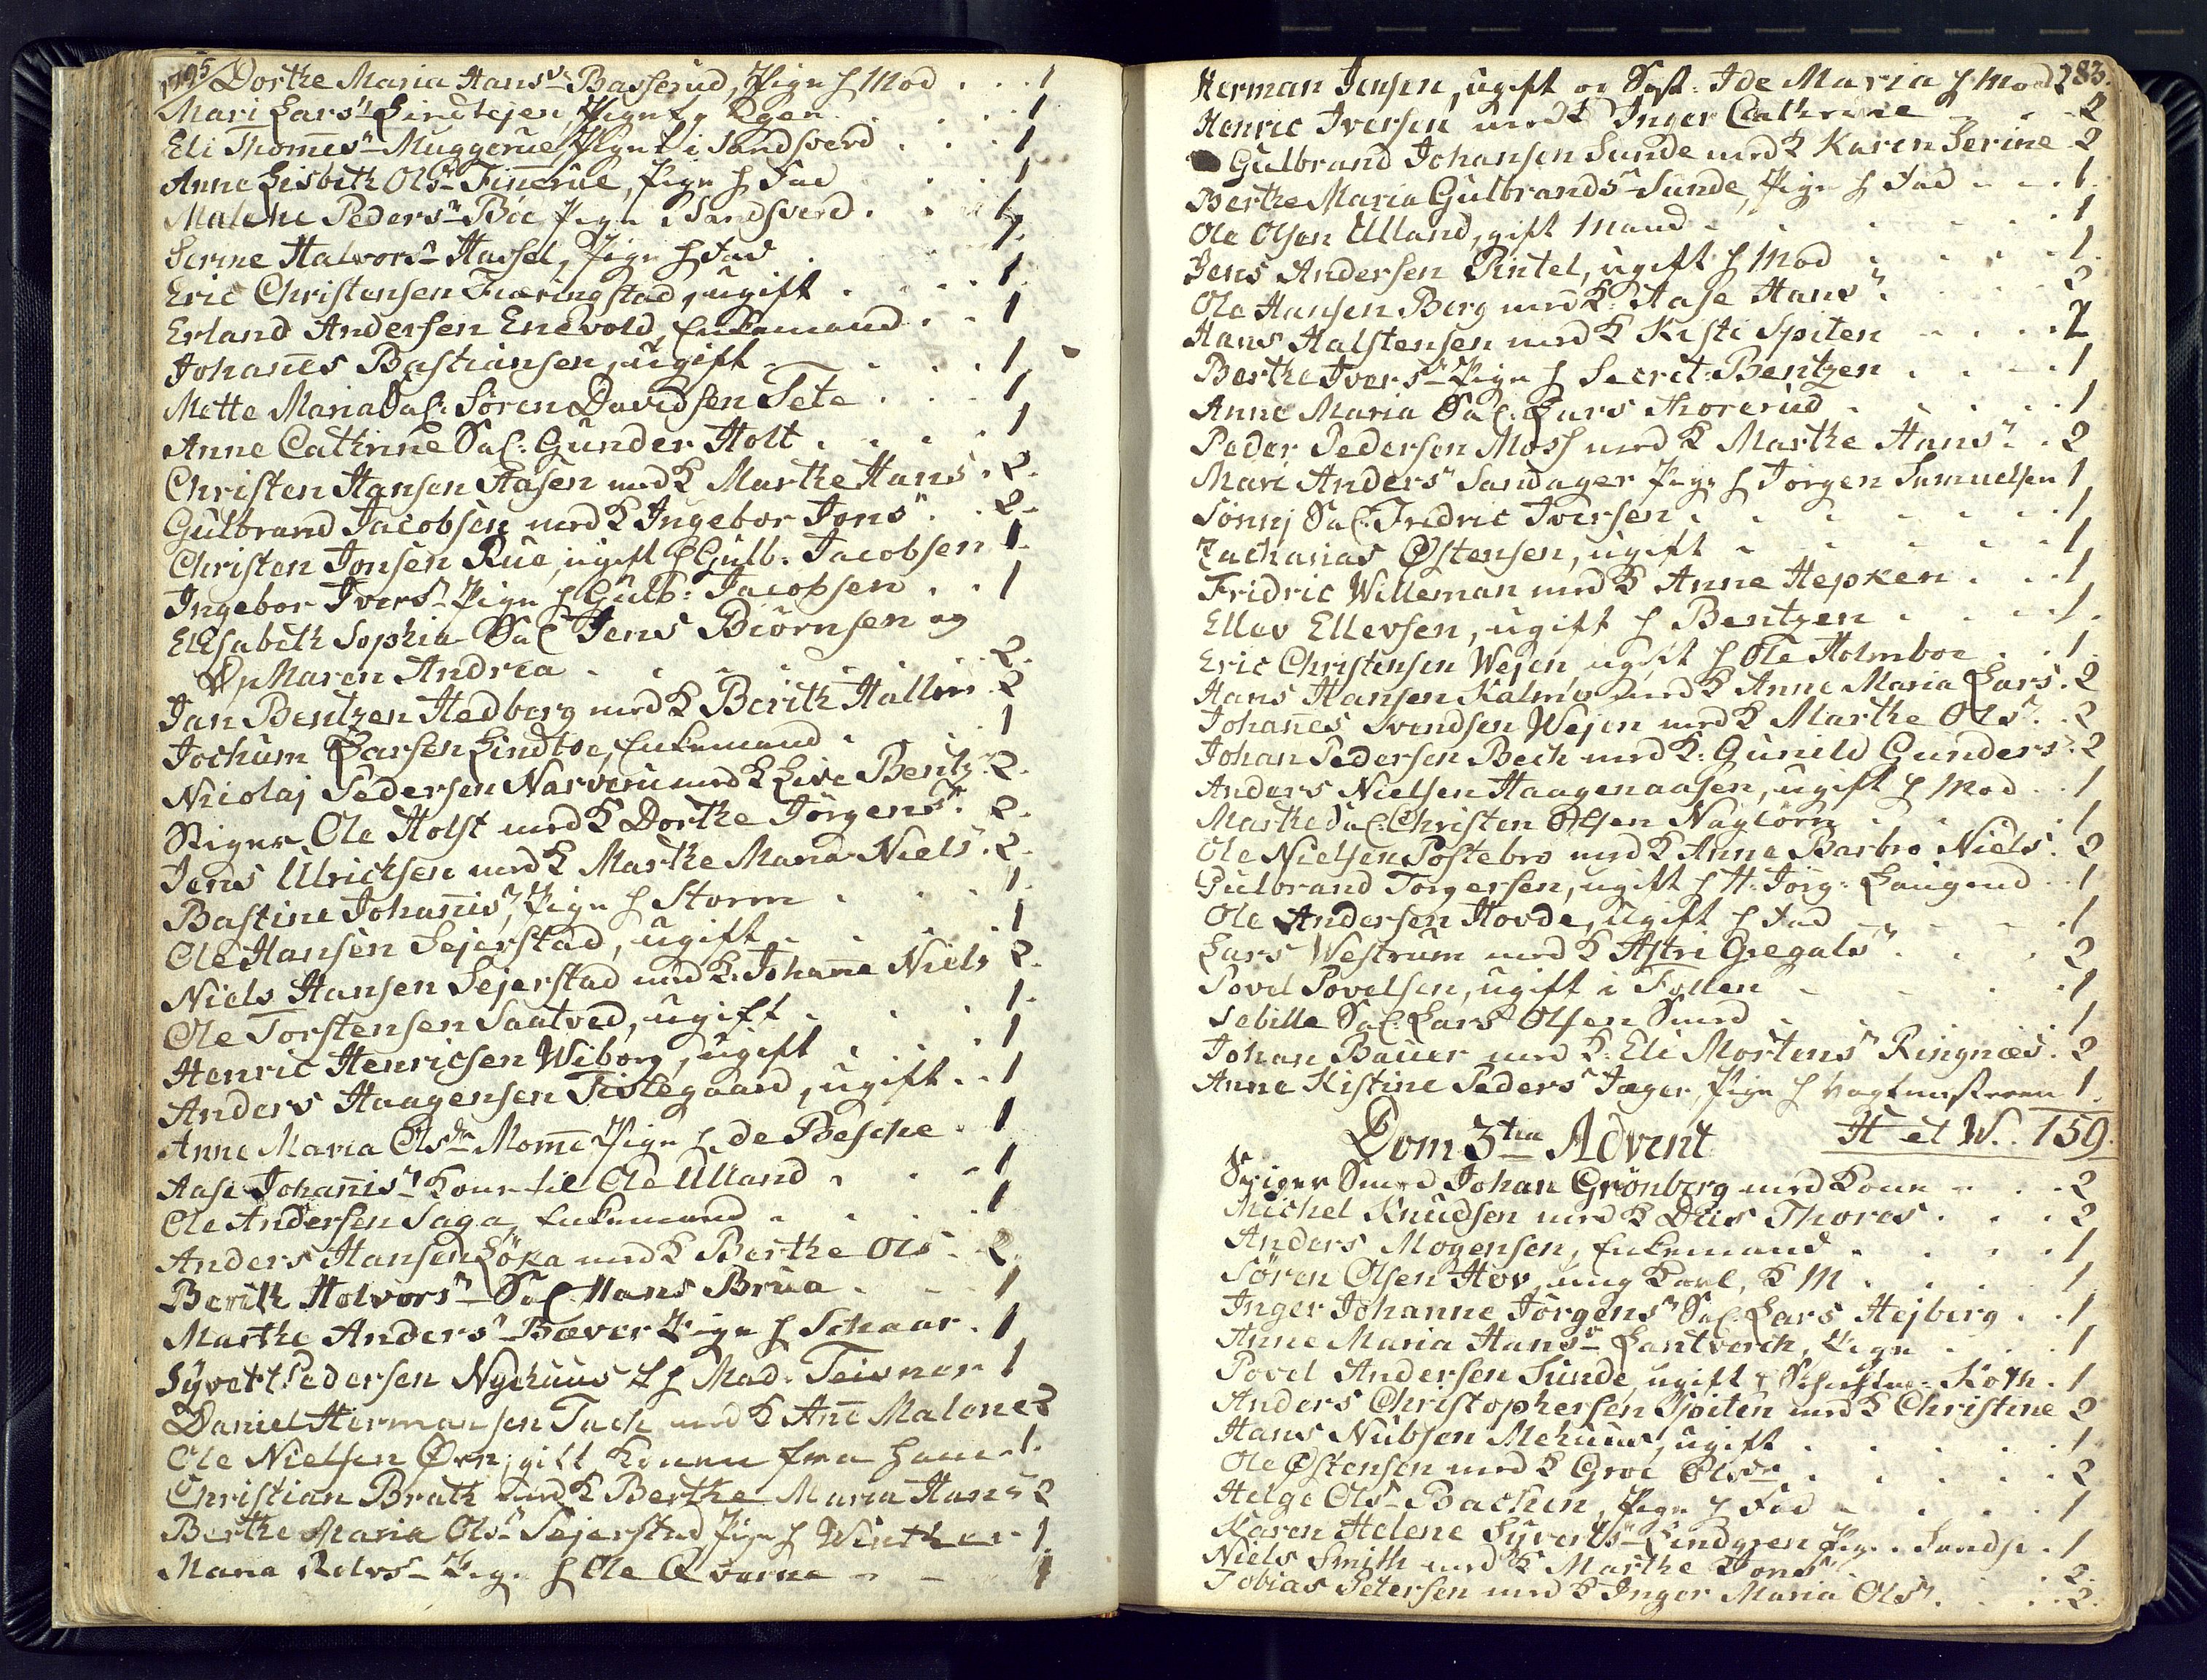 1795 Dorthe Maria Hansdr Basserud, Pige h Mod . . . 1
Mari Larsdr Lindtejen, Pige . . . 1
Eli Thomesdr Muggerue Pige i Sandsverd . . . 1
Anne Lisbeth Olsdr Finerue, Pige h Fad . . 1
Malene Pedersdr Böe Pige i Sandsverd . . 1
Serine Halvorsdr Hassel, Pige h Fad . 1.
Eric Christensen Fiæringstad, ugift . . . 1
Erland Andersen Enevold, Enkemand . . 1
Johan̄es Bastiansen, ugift . . . 1
Mette Maria Sal: Sören Davidsen Tete . . . 1
Anne Cathrine Sal: Gunder Holt . . . . 1
Christen Hansen Aasen med K Marthe Hans . 2.
Gulbrand Jacobsen med K Ingebor Jonsdr . . 2.
Christen Jonsen Rue, ugift h Gulb: Jacobsen 1.
Ingebor Iversdr Pige h Gulb: Jacobsen . . 1
Elisabeth Sophia Sal Jens Biörnsen og
Maren Andrea . . . . . 2.
Jan Bentzen Hedberg med K Berith Hallin 2
Jochum Larsen Lindtoe, Enkemand . . . 1
Nicolaj Pedersen Narverue med K Live Bentz. 2.
Stiger Ole Holst med K Dorthe Jörgensdr. 2.
Jens Ulrichsen med K Marthe Maria Niels. 2.
Bastine Johan̄isdr, Pige h Storm . . . 1.
Ole Hansen Sejerstad, ugift . . . . 1
Niels Hansen Sejerstad med K. Johan̄e Niels 2.
Ole Torstensen Saatved, ugift . . . 1.
Henric Henricsen Wiborg, ugift . . . 1
Anders Haagensen Tislegaard, ugift . . 1
Anne Maria Olsdr Mom̄e Pige h de Besche . 1
Aase Johan̄isdr Kone til Ole Ulland . . 1
Ole Andersen Saga, Enkemand . . . . 1
Anders Hansen Löka med K Berthe Ols . 2.
Berith Halvorsdr Sal Hans Brua . . . 1
Marthe Andersdr Bæver Pige h Schaar . 1
Syvert Pedersen Nyehuus h Mad. Teisner 1
Daniel Hermansen Tach med K An̄e Malene 2
Ole Nielsen Örn, gift, Konen fra ham . 1.
Christian Brath med K Berthe Maria Hans 2
Berthe Maria Olsdr Sejerstad Pige h Winther 1
Maria Rolvsdr Pige h Ole Qverne . . . 1
Herman Jensen, ugift og Søst: Ide Maria h Mod 2 83.
Henric Iversen med K Inger Cathrine . . . 2
Gulbrand Johansen Sunde med K Karen Serine 2
Berthe Maria Gulbrandsdr Sunde, Pige h Fad . . . 1.
Ole Olsen Ulland, gift Mand . . . . 1
Jens Andersen Pintel, ugift h Mod . . . 1.
Ole Hansen Berg med K. Aase Hansdr. . . 2
Hans Halstensen med K Kisti Spiten . . . . 2
Berthe Iversdr Pige h Secret: Bentzen . . . . 1
Anne Maria Sal: Lars Thorerud . . . . 1
Peder Pedersen Moss med K Marthe Hansdr . 2
Mari Andersdr Sandager Pige h Jörgen Samuelsen 1
Sönnj Sal: Fredric Iversen . . . . . 1
Zacharias Östensen, ugift . . . . . 1
Fridric Willeman med K Anne Hepken . . . 1
Ellev Ellevsen, ugift h Bentzen . . . . 1.
Eric Christensen Wejen ugift h Ole Holmboe . . 1.
Hans Hansen Kalmer med K Anne Maria Lars. 2
Johan̄es Svendsen Wejen med K Marthe Olsdr. . 2
Johan Pedersen Bech med K. Gunild Gunders. 2
Anders Nielsen Haagenaasen, ugift h Mod . . 1
Marthe Sal: Christen Olsen Naglörn . . . 1
Ole Nielsen Postebro med K Anne Barbro Niels. 2
Gulbrand Torgersen, ugift h H: Jörg: Laugerud . . 1
Ole Andersen Hovde, ugift h Fad . . . 1
Lars Westrum med K Astri Gregalsdr . . . 2
Povel Povelsen, ugift i Follen . . . 1
Sebille Sal: Lars Olsen Smed . . . 1
Johan Bauer med K. Eli Mortensdr Ringnæs. 2
Anne Kistine Pedersdr Jæger, Pige h Vagtmesteren 1.
Dom 3tia Advent H et W. 159.
Stiger Smed Johan Grönberg med Kone . . . 2
Michel Knudsen med K Thores . . . 2
Anders Mogensen, Enkemand . . . . 1
Sören Olsen Hov, ung Karl, K M . . . . 1
Inger Johanne Jörgensdr Sal: Lars Hejberg . . 1
Anne Maria Hansdr Lantverch, Pige . . . 1
Povel Andersen Sunde, ugift h Koth . 1
Anders Christophersen Spiten med K Christine 2
Hans Nubsen Mehuus, ugift . . . . . 1
Ole Östensen med K Groe Olsdr . . . . 2
Helge Olsdr Bachen, Pige h Fad . . . . 1
Karen Helene Syvertsdr Lindgren Pige i Sandsv . 1
Niels Smith med K Marthe Jonsdr . . 2
Tobias Petersen med K Inger Maria Olsdr. . . . 2.